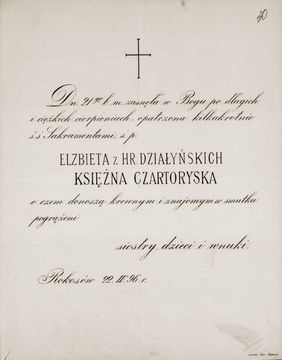 30
Dn. 21go b. m. zasnęła w Bogu po długich
i ciężkich cierpieniach, opatrzona kilkakrotnie
ś.ś Sakramentami, ś. p.
ELZBIETA z HR. DZIAŁYŃSKICH
KSIĘŻNA CZARTORYSKA
o czem donoszą krewnym i znajomym w smutku
pogrążeni
siostry, dzieci i wnuki.
Rokosów 22. IV. 96 r.